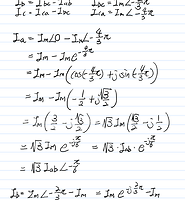 I_b = I_bc - I_ab    I_bc = I_m∠-2/3π
I_c = I_ca - I_bc    I_ca = I_m∠-4/3π
I_a = I_m∠0 - I_m∠-4/3π
= I_m - I_m e^(-j4/3π)
= I_m - I_m(cos(-4/3π) + j sin(-4/3π))
= I_m - I_m(-1/2 + j√3/2)
= I_m(3/2 - j√3/2) = √3 I_m(√3/2 - j1/2)
= √3 I_m e^(-jπ/6) = √3 · I_ab · e^(-jπ/6)
= √3 I_ab∠-π/6
I_b = I_m∠-2/3π - I_m = I_m e^(-j2/3π) - I_m